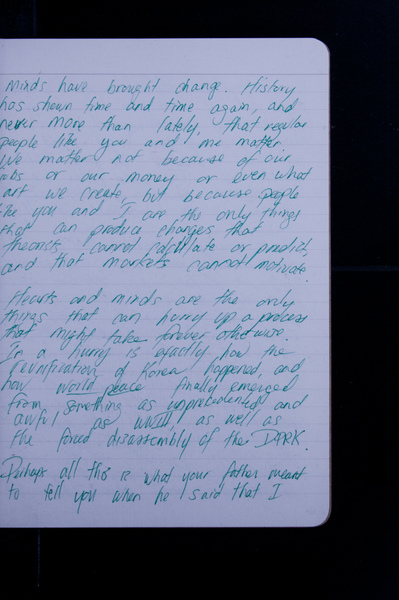 Minds have brought change. History
has shown time and time again, and
never more than lately, that regular
people like you and me matter.
We matter not because of our
jobs or our money or even what
art we create, but because people
like you and I are the only things
that can produce changes that
theorists cannot calculate or predict,
and that markets cannot motivate.
Hearts and minds are the only
things that can hurry up a process
that might take forever otherwise.
In a hurry is exactly how the
reunification of Korea happened, and
how world peace finally emerged
from something as unprecedented and
awful as WWIII, as well as
the forced disassembly of the DPRK.
Perhaps all this is what your father meant
to tell you when he said that I